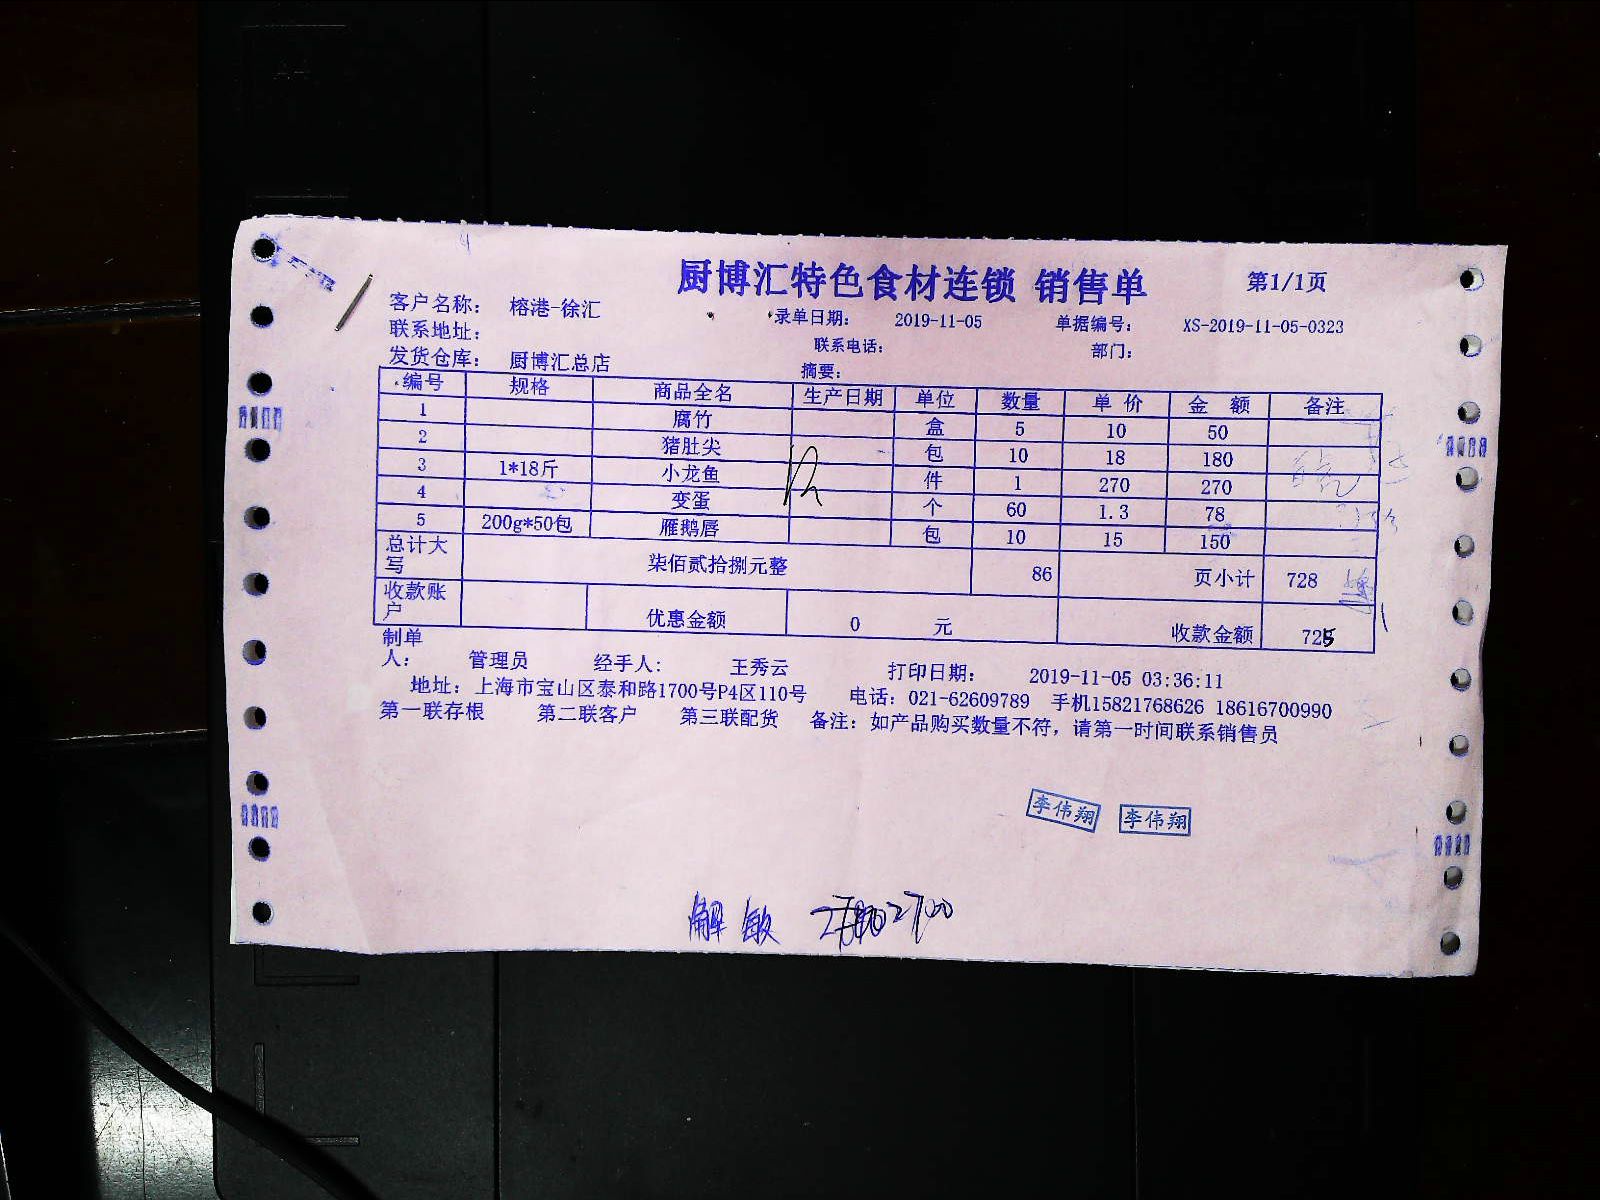 厨博汇特色食材连锁 销售单 第1/1页
客户名称: 榕港-徐汇 录单日期: 2019-11-05 单据编号: XS-2019-11-05-0323
联系地址: 联系电话: 部门:
发货仓库: 厨博汇总店 摘要:
编号 规格 商品全名 生产日期 单位 数量 单价 金额 备注
1 腐竹 盒 5 10 50
2 猪肚尖 包 10 18 180
3 1*18斤 小龙鱼 件 1 270 270
4 变蛋 个 60 1.3 78
5 200g*50包 雁鹅唇 包 10 15 150
总计大写 柒佰贰拾捌元整 86 页小计 728
收款账户 优惠金额 0 元 收款金额 728
制单人: 管理员 经手人: 王秀云 打印日期: 2019-11-05 03:36:11
地址: 上海市宝山区泰和路1700号P4区110号 电话: 021-62609789 手机15821768626 18616700990
第一联存根 第二联客户 第三联配货 备注: 如产品购买数量不符, 请第一时间联系销售员
李伟翔 李伟翔
解敏